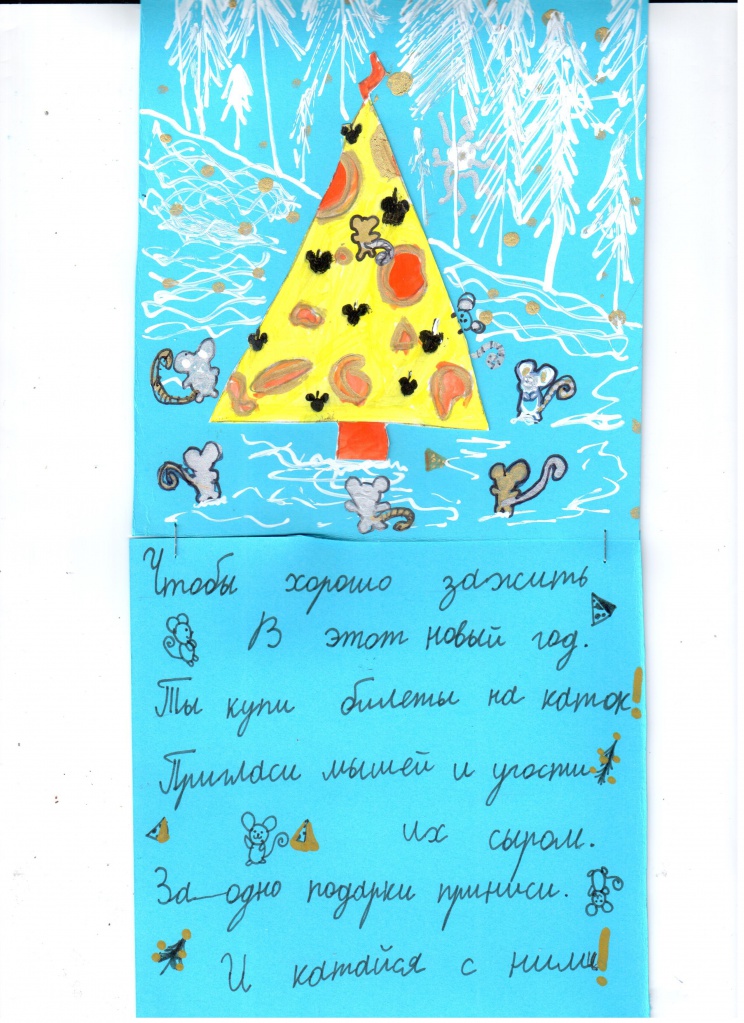 Чтобы хорошо зажить
В этот новый год.
Ты купи билеты на каток!
Пригласи мышей и угости
их сыром.
За одно подарки приниси.
И катайся с ними!